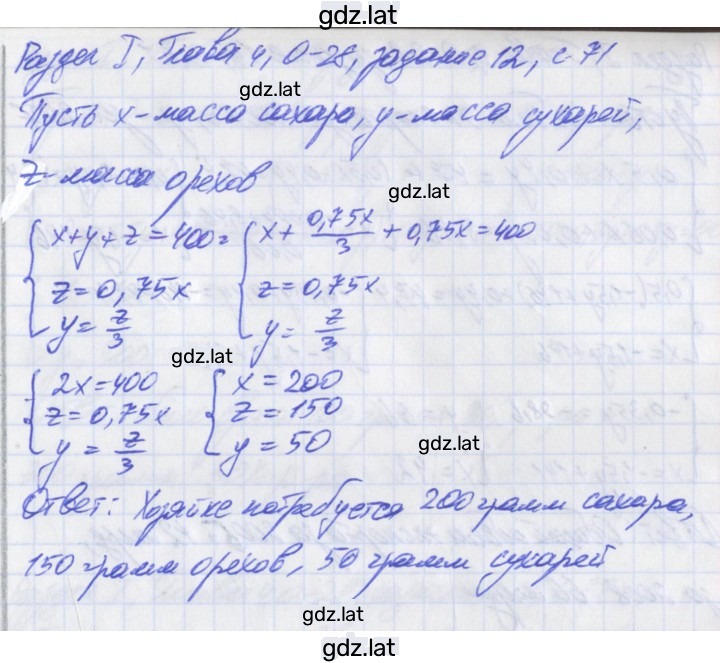 gdz.lat
Раздел I, Глава 4, О-28, задание 12, с 71
gdz.lat
Пусть x - масса сахара, y - масса сухарей,
z - масса орехов
gdz.lat
{ x+y+z=400= { x + 0,75x/3 + 0,75x = 400
z=0,75x z=0,75x
y= z/3 y= z/3
gdz.lat
{ 2x=400 { x = 200
z=0,75x z = 150
y = z/3 y = 50
gdz.lat
Ответ: Хозяйке потребуется 200 грамм сахара,
150 грамм орехов, 50 грамм сухарей
gdz.lat
gdz.lat